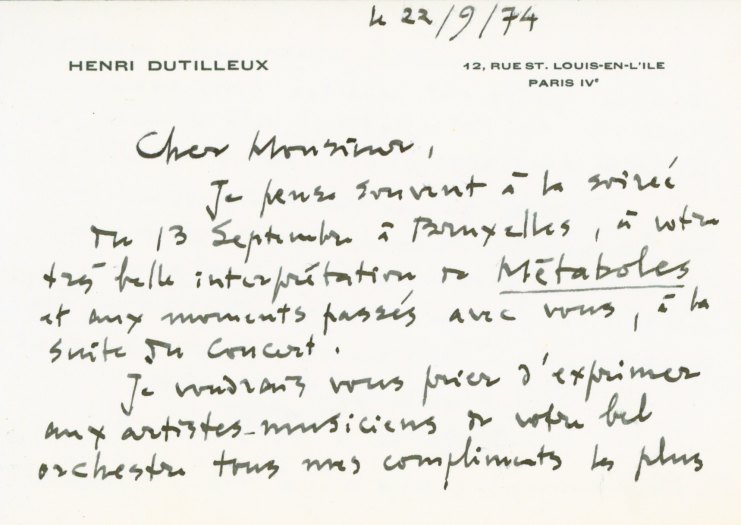 le 22/9/74
HENRI DUTILLEUX
12, RUE ST. LOUIS-EN-L'ILE
PARIS IVe
Cher Monsieur,
Je pense souvent à la soirée
du 13 Septembre à Bruxelles, à votre
très belle interprétation de Métaboles
et aux moments passés avec vous, à la
suite du concert.
Je voudrais vous prier d'exprimer
aux artistes-musiciens de votre bel
orchestre tous mes compliments les plus